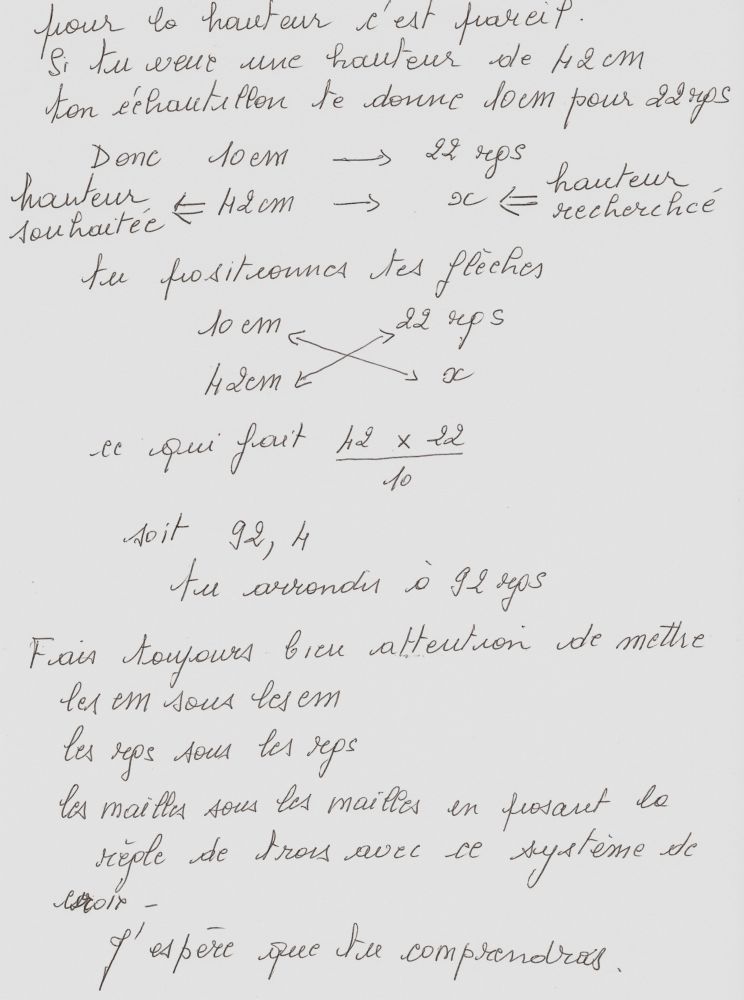 pour la hauteur c'est pareil.
Si tu veux une hauteur de 42cm
ton échantillon te donne 10cm pour 22 rgs
Donc 10cm → 22 rgs
hauteur souhaitée ⇐ 42cm → x ⇐ hauteur recherchée
tu positionnes tes flèches
10cm 22 rgs
42cm x
ce qui fait 42 x 22
10
soit 92,4
tu arrondis à 92 rgs
Fais toujours bien attention de mettre
les cm sous les cm
les rgs sous les rgs
les mailles sous les mailles en posant la
règle de trois avec ce système de
croix -
J'espère que tu comprendras.